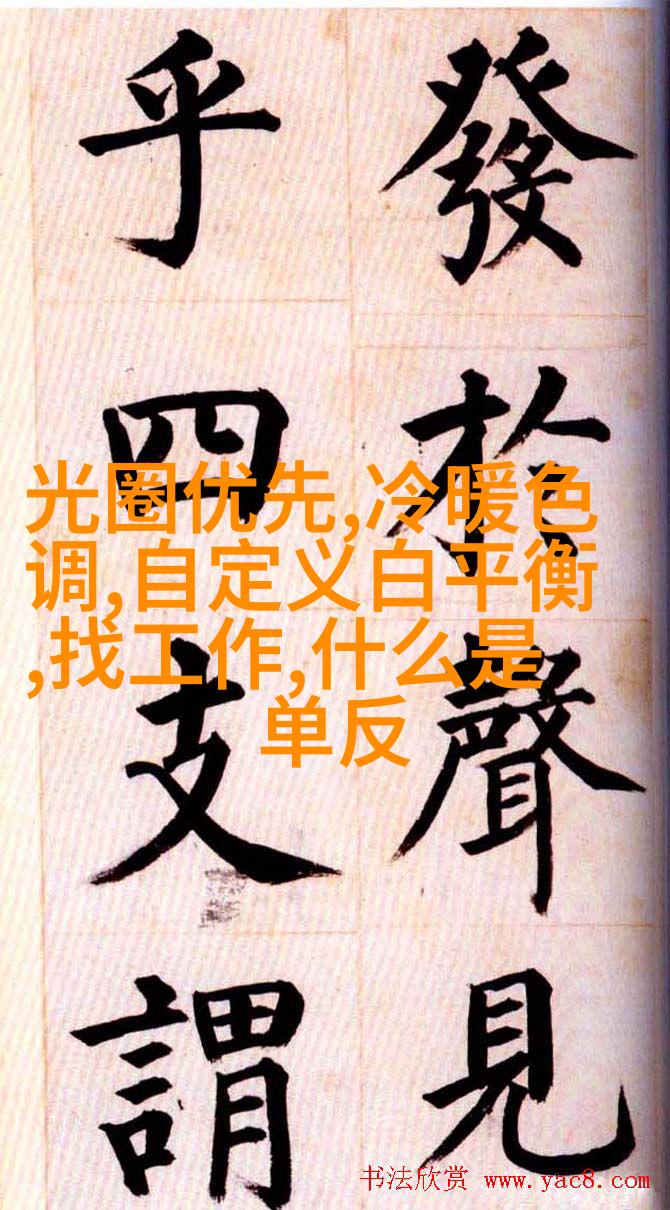 發於聲見
乎四支謂
光圈优先,冷暖色
调,自定义白平衡
,找工作,什么是
单反
书法欣赏 www.yac8.com